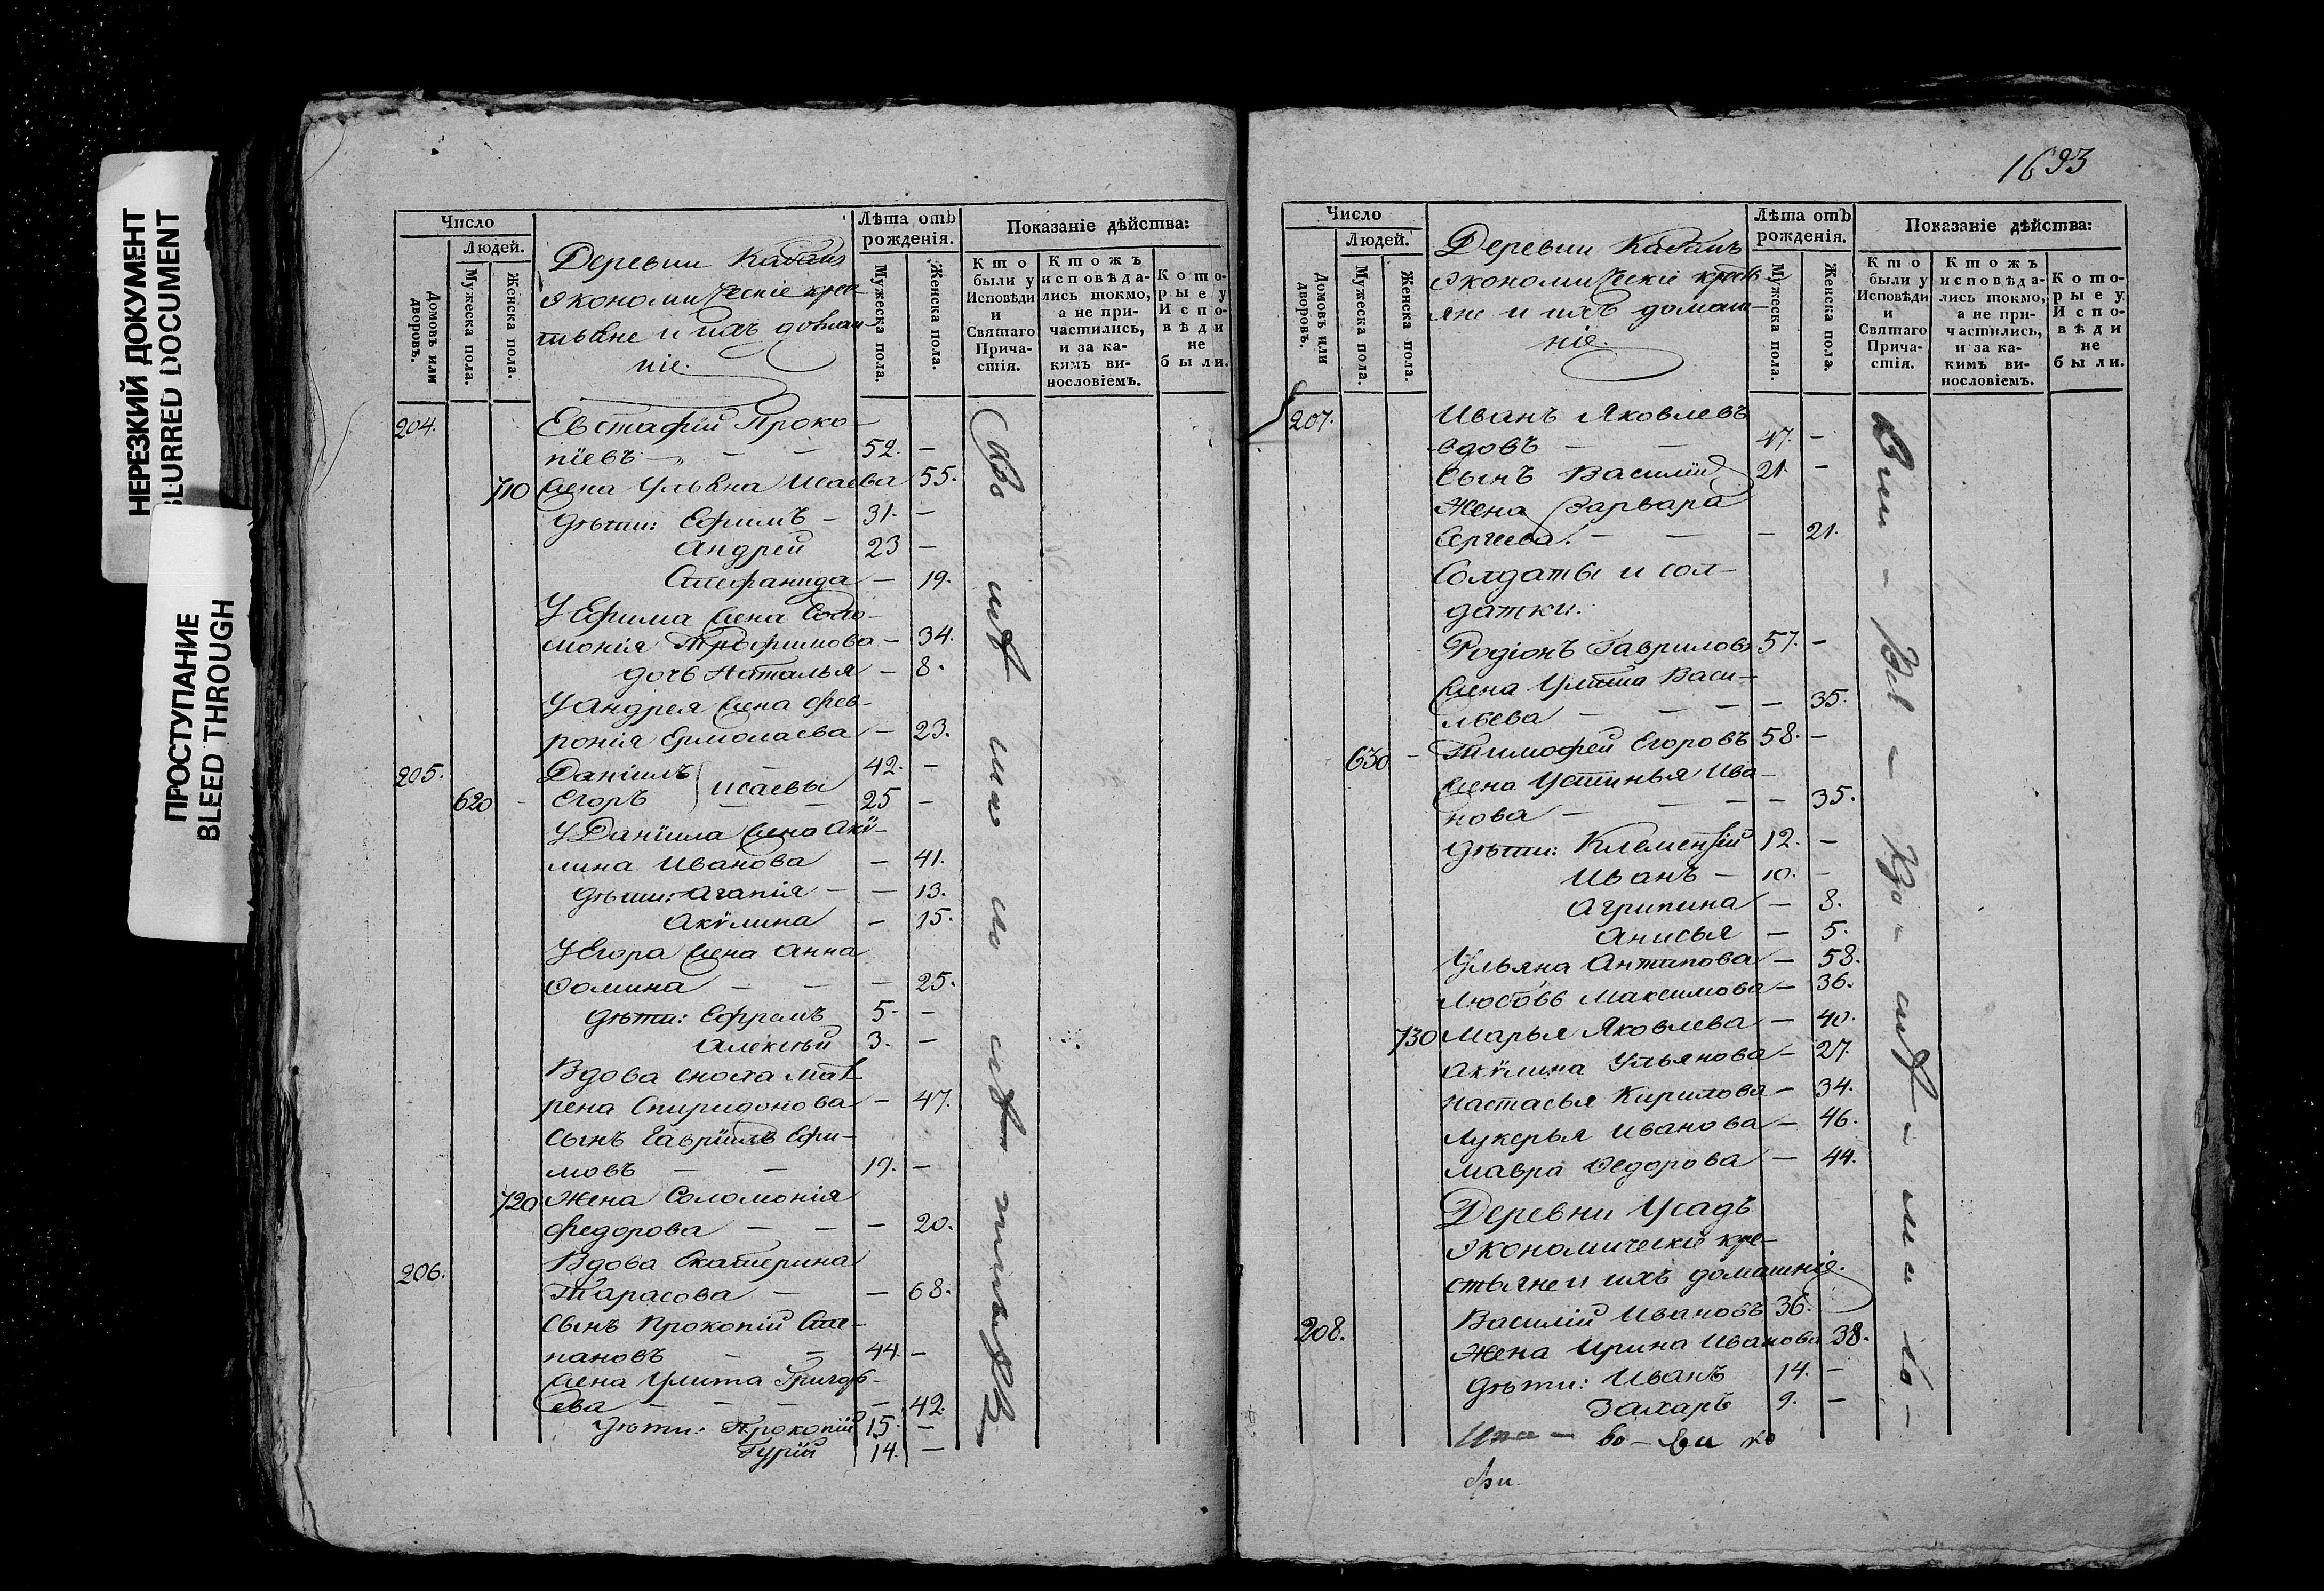 НЕРЕЗКИЙ ДОКУМЕНТ
BLURRED DOCUMENT
ПРОСТУПАНИЕ
BLEED THROUGH
Число
Людей.
Домовъ или дворовъ.
Мужеска пола.
Женска пола.
Деревни
экономическіе крес-
тьяне и ихъ домаш-
ніе.
Лѣта отъ рожденія.
Мужеска пола.
Женска пола.
Показаніе дѣйства:
Кто были у Исповѣди и Святаго Причастія.
Ктожъ исповѣдались токмо, а не причастились, и за какимъ винословіемъ.
Которые у Исповѣди не были.
204. Евстафій Проко-
піевъ — — — 52. —
710 жена Ульяна Исаева 55.
дѣти: Ефимъ — 31. —
Андрей 23 —
Стефанида — 19.
У Ефима жена Соло-
монія Трофимова — 34.
дочь Наталья — 8.
У Андрея жена Фев-
ронія Ермолаева — 23.
205. Даніилъ 42. —
Исаевы
620 Егоръ 25 —
У Даніила жена Акѵ-
лина Иванова — 41.
дѣти: Агапія — — 13.
Акѵлина — 15.
У Егора жена Анна
Ѳомина — — — 25.
дѣти: Ефремъ 5. —
Алексѣй 3. —
Вдова сноха Мат-
рена Спиридонова — 47.
сынъ Гавріилъ Ефи-
мовъ — — 19. —
720 Жена Соломонія
Федорова — — — 20.
206. Вдова Екатерина
Тарасова — — 68.
сынъ Прокопій Сте-
пановъ — — 44. —
жена Улита Григорь-
ева — — — — 42.
дѣти: Прокопій 15. —
Гурій 14. —
1693
Число
Людей.
Домовъ или дворовъ.
Мужеска пола.
Женска пола.
Деревни
экономическіе кресть-
яне и ихъ домаш-
ніе.
Лѣта отъ рожденія.
Мужеска пола.
Женска пола.
Показаніе дѣйства:
Кто были у Исповѣди и Святаго Причастія.
Ктожъ исповѣдались токмо, а не причастились, и за какимъ винословіемъ.
Которые у Исповѣди не были.
207. Иванъ Яковлевъ
вдовъ — — 47. —
Сынъ Василій 21. —
Жена Варвара
Сергеева. — — — 21.
Солдаты и сол-
датки.
Родіонъ Гавриловъ 57. —
жена Улита Васи-
льева — — — — 35.
630 — Тимофей Егоровъ 58. —
жена Устинья Ива-
нова — — — — 35.
дѣти: Клементій 12. —
Иванъ — 10. —
Агрипина — 8.
Анисья — 5.
Ульяна Антипова — 58.
Любовь Максимова — 36.
730 Марья Яковлева — 40.
Акѵлина Ульянова — 27.
Настасья Кирилова — 34.
Лукерья Иванова — 46.
Мавра Ѳедорова — 44.
Деревни Усадъ
экономическіе кре-
стьяне и ихъ домашніе.
208. Василій Ивановъ 36.
Жена Ирина Иванова 38.
дѣти: Иванъ 14. —
Захаръ 9. —